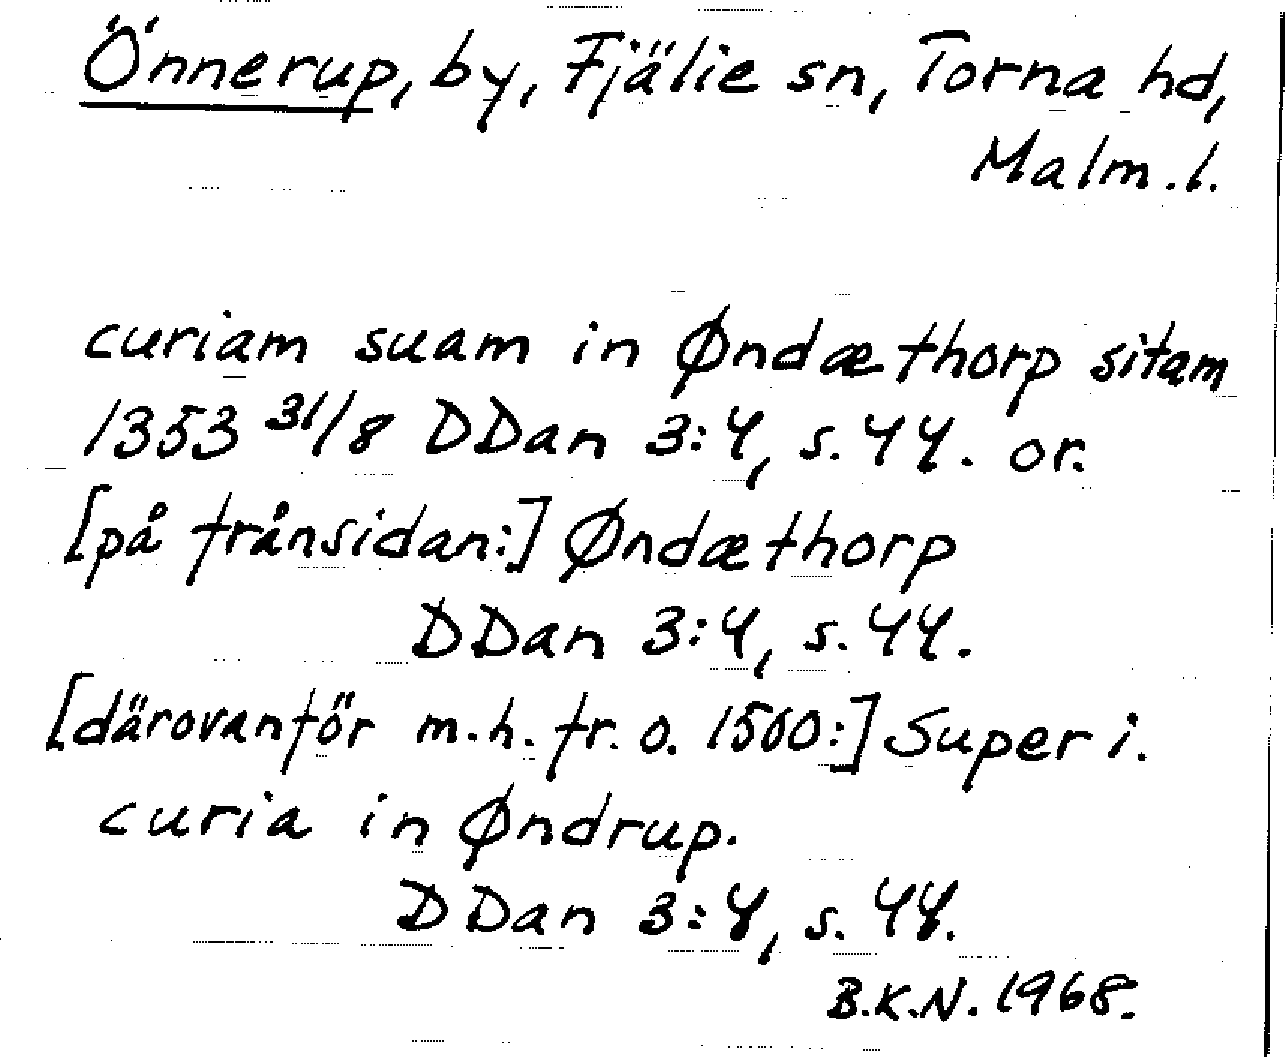 Önnerup, by, Fjälie sn, Torna hd,
Malm.l.
curiam suam in Øndæthorp sitam
1353 31/8 DDan 3:4, s.44. or.
[på frånsidan:] Øndæthorp
DDan 3:4, s.44.
[därovanför m.h. fr. o. 1500:] Super i.
curia in Øndrup.
DDan 3:4, s.44.
B.K.N. 1968.